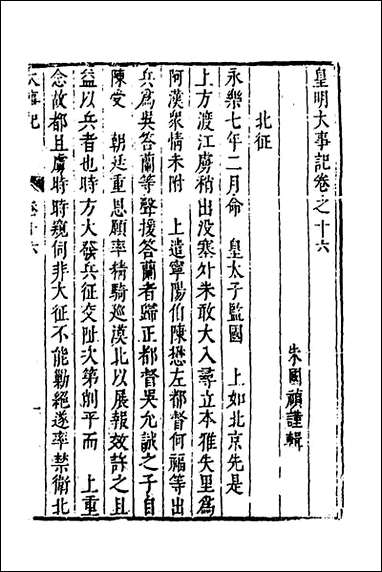 皇明大事記卷之十六
朱國禎謹輯
北征
永樂七年二月命　皇太子監國　上如北京先是
上方渡江虜稍出没塞外未敢大入尋立本雅失里爲
阿漢衆情未附　上遣寧陽伯陳懋左都督何福等出
兵爲吳答蘭等聲援答蘭者歸正都督吳允誠之子自
陳受　朝廷重恩願率精騎巡漠北以展報效許之且
益以兵者也時方大發兵征交阯次第削平而　上重
念故都且虜時時窺伺非大征不能勦絕遂率禁衛北
大事記
卷十六
一